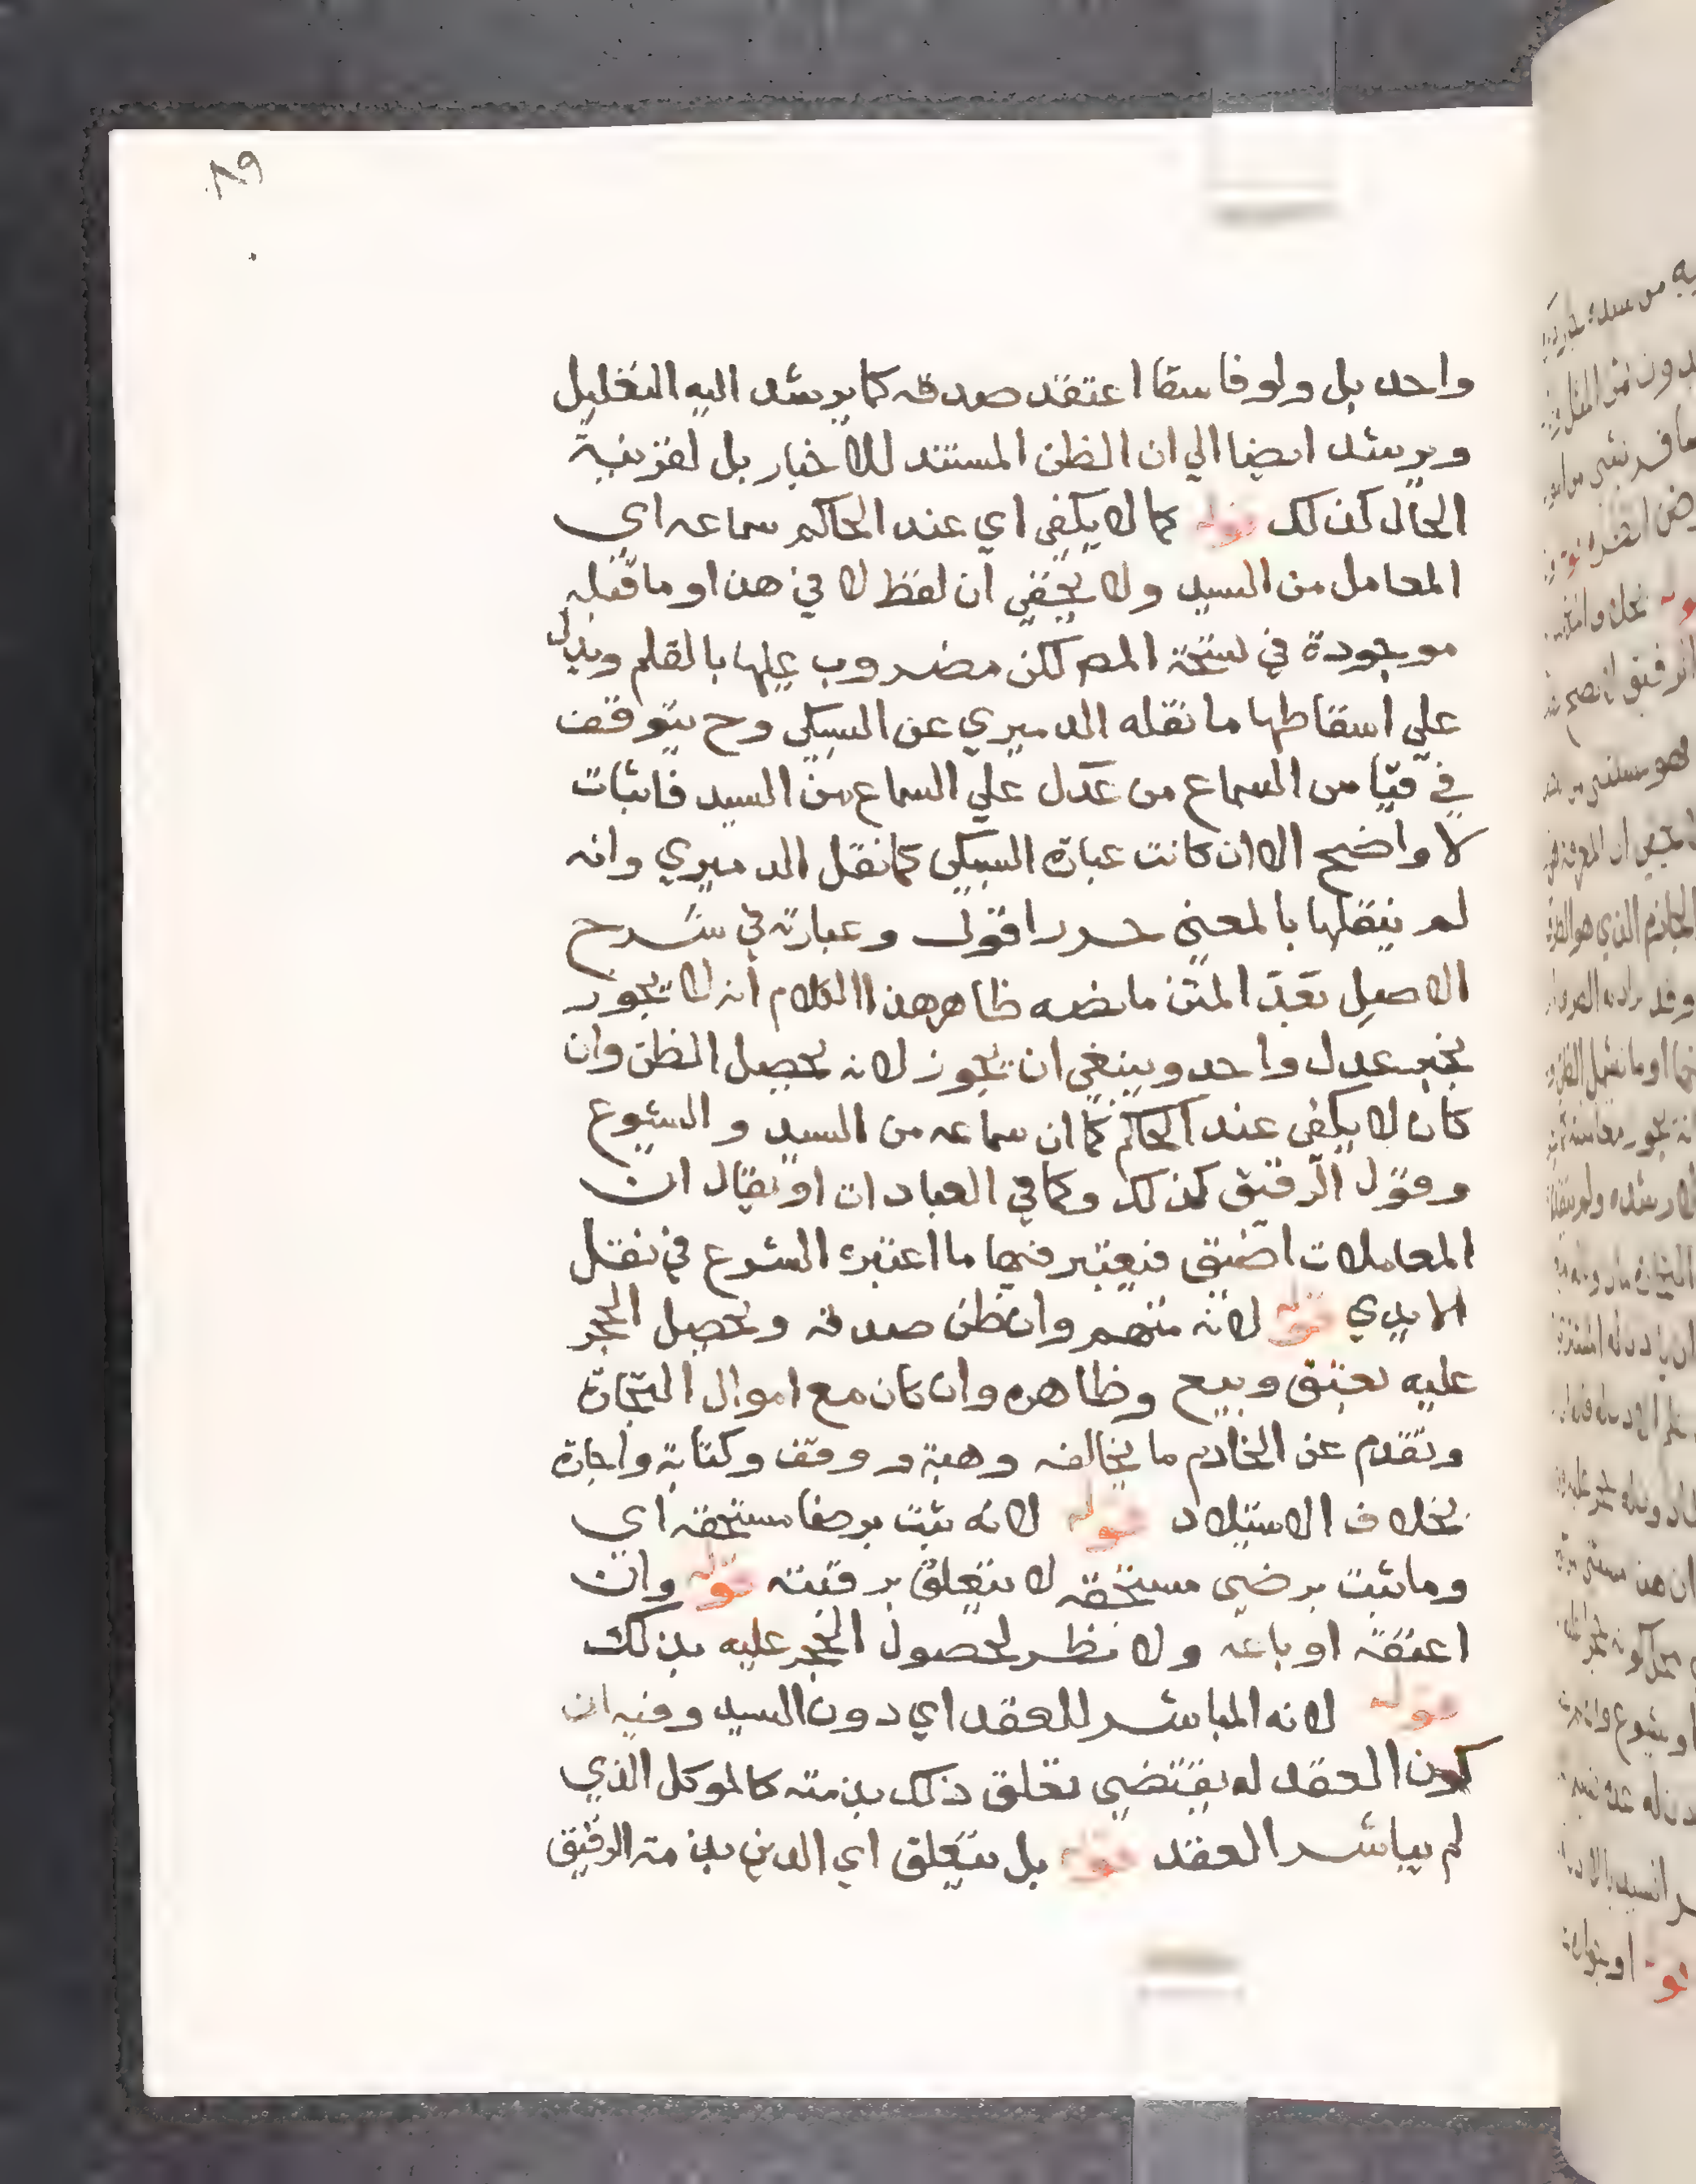 ٨٩
واحد بل ولو فاسقا اعتقد صدقه كما يرشد اليه التعليل
ويرشد ايضا الي ان الظن المستند للاخبار بل لقرينة
الحال كذلك قوله كما لا يكفي اي عند الحاكم سماعه اي
المعامل من السيد ولا يخفي ان لفظ لا في هذا وما قبله
موجودة في نسخة المص لكن مضروب عليها بالقلم ويدل
علي اسقاطها ما نقله الدميري عن السبكي وح يتوقف
في قياس السماع من عدل علي السماع من السيد فاثبات
لا واضح الا ان كانت عبارة السبكي كما نقل الدميري وانه
لم ينقلها بالمعني حرر اقول وعبارته في شرح
الاصل بعد المتن ما نصه ظاهر هذا الكلام انه لا يجوز
بخبر عدل واحد وينبغي ان يجوز لانه يحصل الظن وان
كان لا يكفي عند الحاكم كما ان سماعه من السيد والشيوع
وقول الرقيق كذلك وكما في العبادات او يقال ان
المعاملات اضيق فيعتبر فيها ما اعتبره الشرع في نقل
الايدي قوله لانه متهم وان ظن صدقه ويحصل الحجر
عليه بعتق وبيع وظاهره وان كان مع اموال التجارة
وتقدم عن الخادم ما يخالفه وهبة ووقف وكتابة واجارة
بخلاف الاستيلاد قوله لانه ثبت برضا مستحقه اي
وما ثبت برضي مستحقه لا يتعلق برقبته قوله وان
اعتقه او باعه ولا نظر لحصول الحجر عليه بذلك
قوله لانه المباشر للعقد اي دون السيد وفيه ان
كون العقد له يقتضي تعلق ذلك بذمته كالموكل الذي
لم يباشر العقد قوله بل يتعلق اي الدين بذمة الرقيق